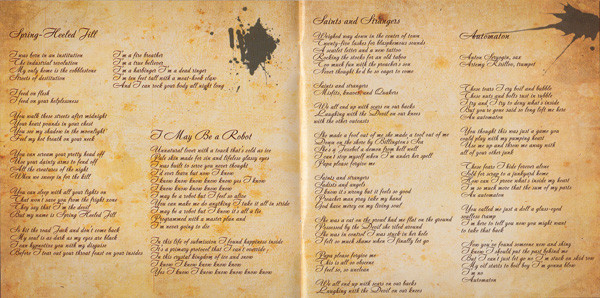 Spring-Heeled Jill
I was born in an institution
The industrial revolution
My only home is the cobblestone
Streets of destitution
I feed on flesh
I feed on your helplessness
You walk these streets after midnight
Your heart pounds in your chest
You see my shadow in the moonlight
Feel my hot breath on your neck
You can scream your pretty head off
Use your dainty arms to fend off
All the creatures of the night
When we swoop in for the kill
You can sleep with all your lights on
That won't save you from the fright zone
They say that I'm the devil
But my name is Spring Heeled Jill
So hit the road Jack and don't come back
My soul is as dark as my eyes are black
I can hypnotize you with my disguise
Before I tear out your throat feast on your insides
I'm a fire breather
I'm a true believer
I'm a harbinger I'm a dead ringer
I'm ten feet tall with a meat-hook claw
And I can rock your body all night long
I May Be a Robot
Unnatural lover with a touch that's cold as ice
Pale skin made for sin and lifeless glassy eyes
I was built to serve you for your pleasure
I'd even learn but now I know
I know know know know know yes I know
I know know know know know
I may be a robot but I feel so alive
You can make me do anything I take it all in stride
I may be a robot but I know it's all a lie
Programmed with a master plan and
I'm never going to die
In this life of submission I found happiness inside
It's a primary protocol that I can't override
In this crystal kingdom of ice and snow
I know I know know know know know
Yes I know I know know know know know know
Saints and Strangers
Weighed way down in the center of town
Twenty-five lashes for blasphemous sounds
A scarlet letter and a new tattoo
Rocking the stocks for an old taboo
Too much fun with the preacher's son
Never thought he'd be so eager to come
Saints and strangers
Misfits, bussers, and Quakers
We all end up with scars on our backs
Laughing with the Devil on our knees
with the other outcasts
She made a fool out of me she made a tool out of me
Down on the shore by Billington's Sea
She's a Jezebel a demon from hell well
I can't stop myself when I'm under her spell
Papa please forgive me
Saints and strangers
Ladies and angels
I know it's wrong but it feels so good
Preacher man pray take my hand
And have mercy on my living soul
She was a cat on the prowl had me flat on the ground
Possessed by the Devil she riled around
She was in control I was stuck in her hole
I felt so much shame when I finally let go
Papa please forgive me
This is all so obscene
I feel so, so unclean
We all end up with scars on our backs
Laughing with the Devil on our knees
Automaton
Anton Stryogin, sax
Artemy Krislov, trumpet
These tears I cry boil and bubble
These nuts and bolts rust in rubble
I try and I try to deny what's inside
But you're gone said so long left me here
An automaton
You thought this was just a game you
could play with my pumping heart
Use me up and throw me away with
all of your other junk
These tears I hide forever alone
Sold for scrap to a junkyard home
How can I prove what's inside my heart
I'm so much more than the sum of my parts
An automaton
You called me just a doll a glass-eyed
soulless tramp
I'm here to tell you now you might want
to take that back
Now you've found someone new and shiny
I know I should put the past behind me
But I can't just let go no I'm stuck on skid row
My oil starts to boil boy I'm gonna blow
I'm no
Automaton